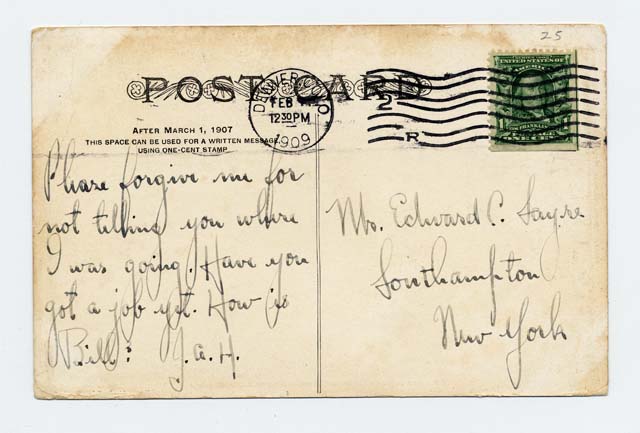 25
POST CARD
DENVER, COLO.
FEB
12 30 PM
1909
2
R
UNITED STATES OF
AMERICA
AFTER MARCH 1, 1907
THIS SPACE CAN BE USED FOR A WRITTEN MESSAGE,
USING ONE-CENT STAMP
Please forgive me for
not telling you where
I was going. Have you
got a job yet. How is
Bill? J.A.H.
Edward C. Sayre
Southampton
New York